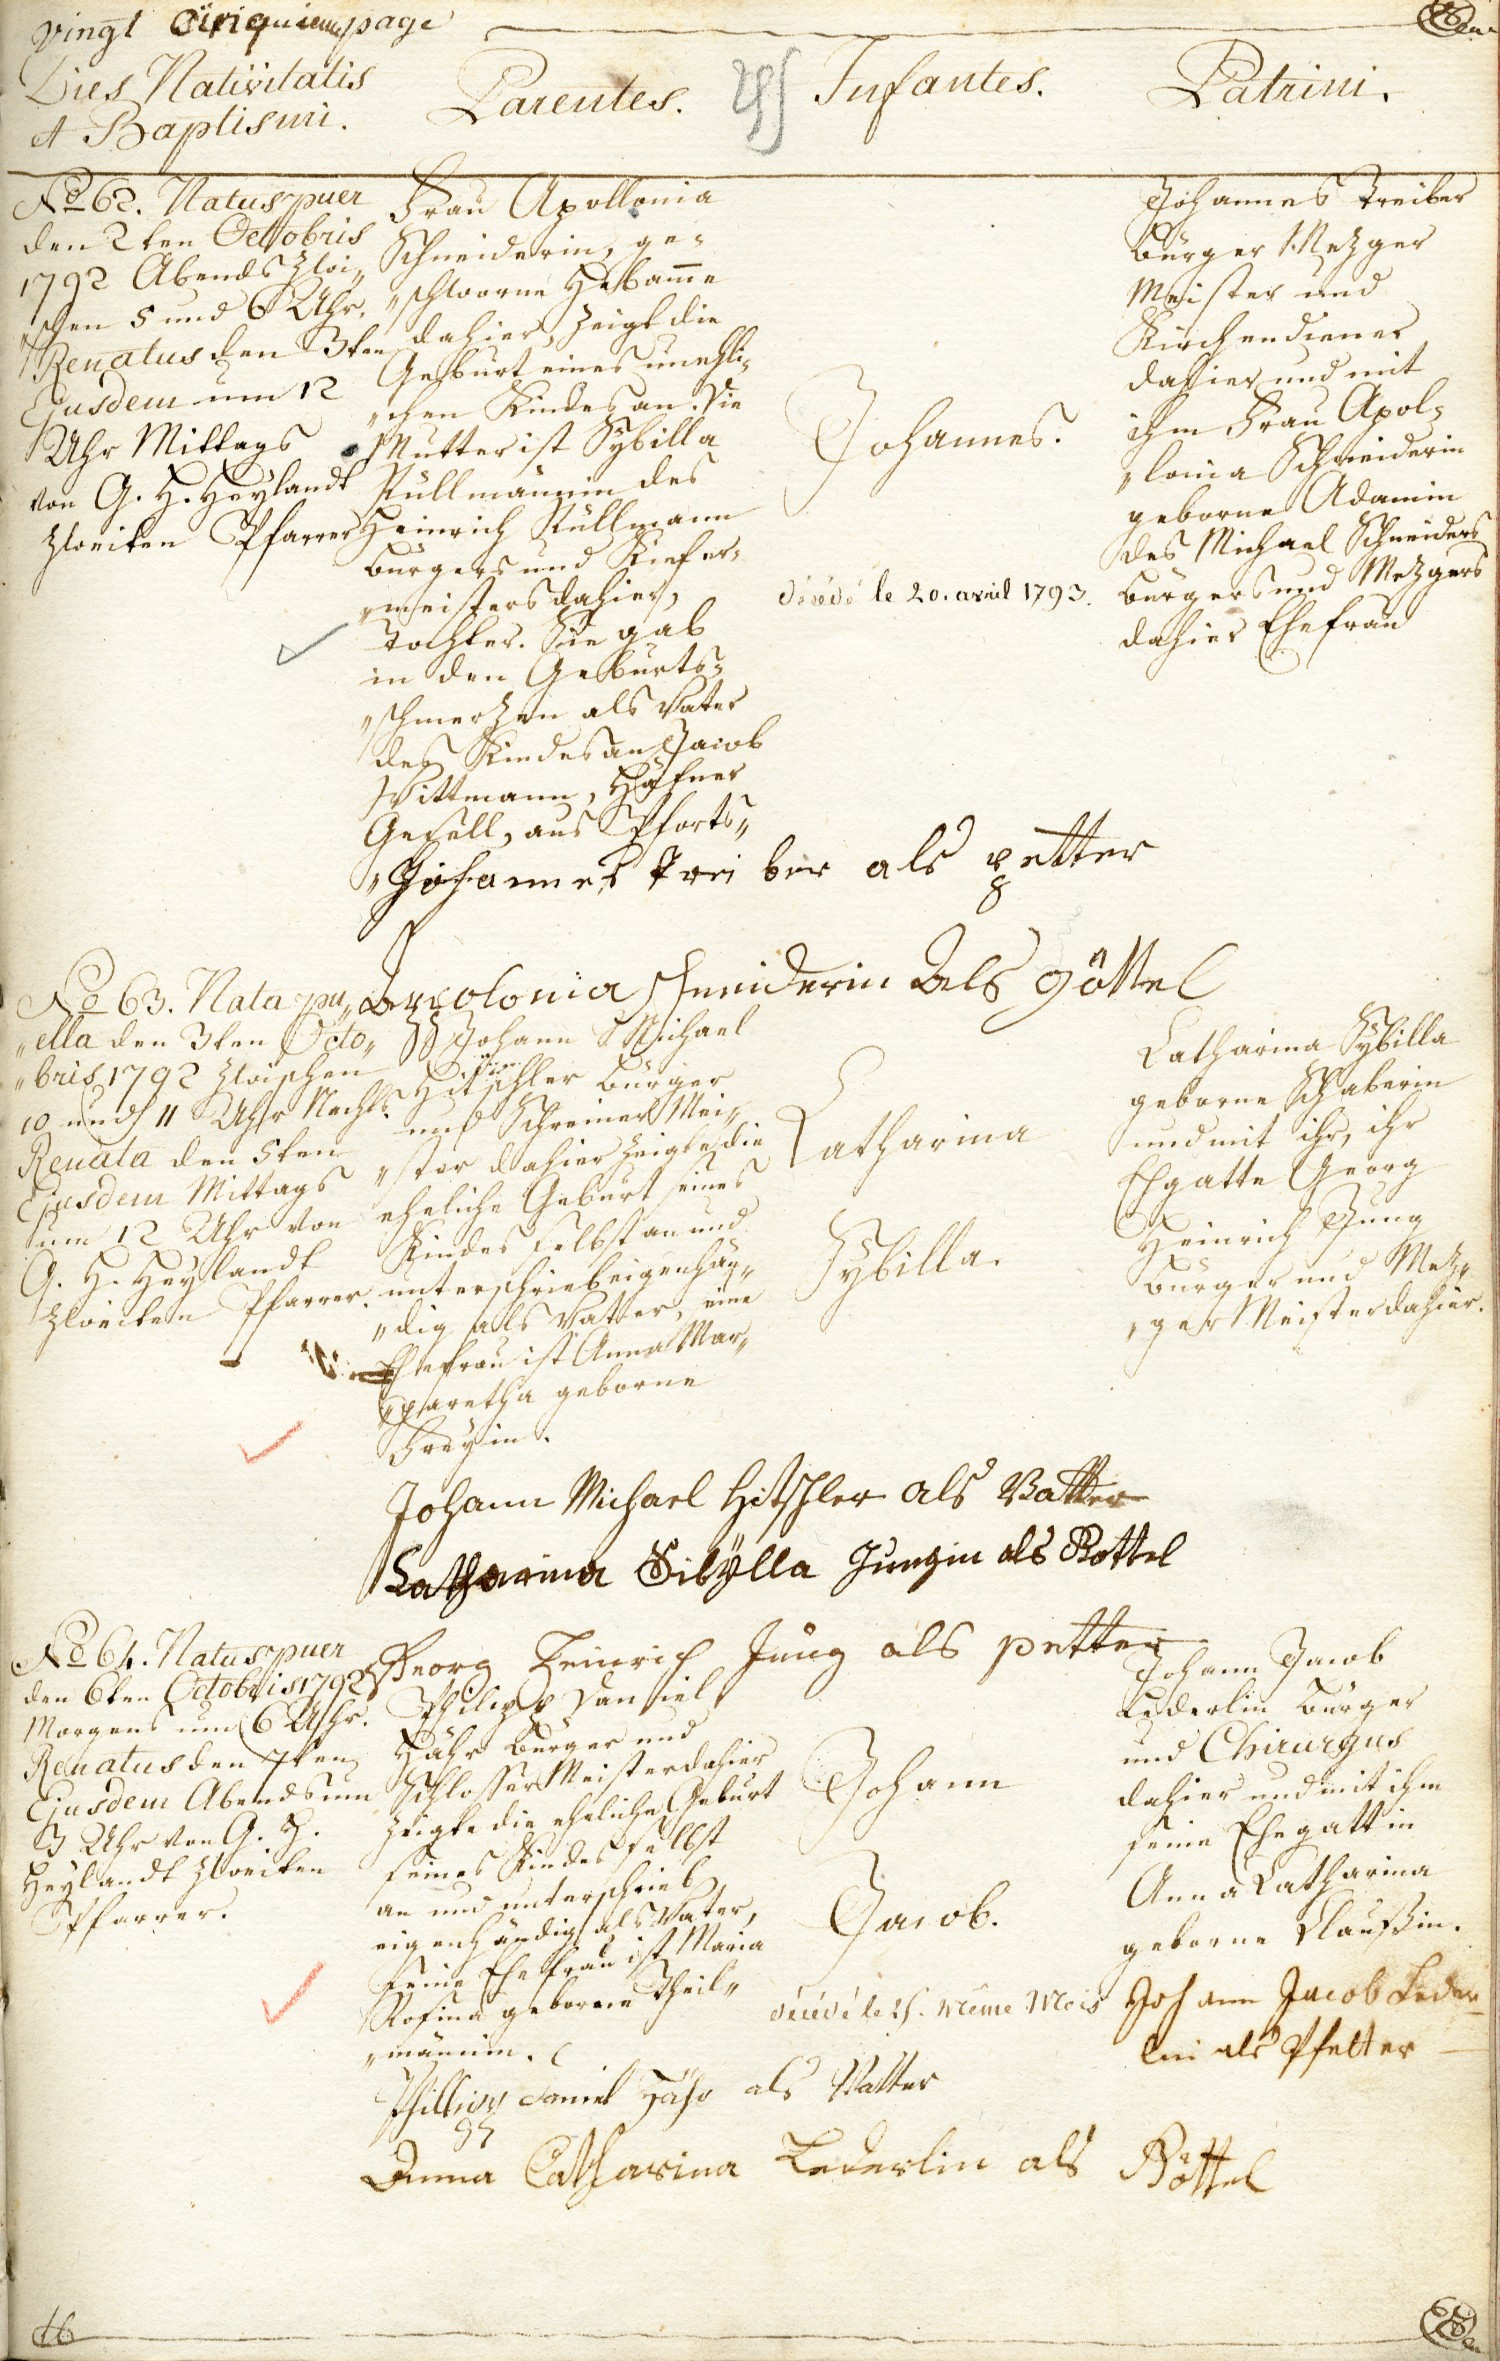 vingt Cinquiem page
Dies Nativitatis
et Baptismi.
Parentes.
Infantes.
Patrini.
No 62. Natus puer
den 2ten Octobris
1792 Abends zwi„
„schen 5 und 6 Uhr.
Renatus den 3ten
Ejusdem um 12
Uhr Mittags
von G. H. Heylandt
Zweiten Pfarrer
Frau Apollonia
Schneiderin, ge„
„schworne Hebam̅e
dahier, zeigt die
Geburt eines unehli„
„chen Kindes an. Die
Mutter ist Sybilla
Stüllmännin des
Heinrich Stüllmann
Burgers und Kiefer„
„meisters dahier,
Tochter. Sie gab
in den Geburts„
„schmerzen als Vater
des Kindes an Jacob
Wittmann, Häfner
Gesell, aus Pforts„
Johannes.
décédé le 20. avril 1793.
Johannes Treiber
Bürger Mezger
Meister und
Kirchendiener
dahier und mit
ihm Frau Apol„
„lonia Schneiderin
geborne Adamin
des Michael Schneiders
Bürgers und Mezgers
dahier Ehefrau
Johannes Treiber als petter
Appolonia schneiderin Als göttel
No 63. Nata pu„
„ella den 3ten Octo„
„bris 1792 zwischen
10 und 11 Uhr Nachts.
Renata den 5ten
Ejusdem Mittags
um 12 Uhr von
G. H. Heylandt
Zweiten Pfarrer.
Johann Michael
Hitschler Bürger
und Schreiner Mei„
„ster dahier zeigte die
eheliche Geburt seines
Kindes selbst an und
unterschrieb eigenhän„
„dig als Vatter, eine
Ehefrau ist Anna Mar„
„garetha geborne
Freyin.
Catharina
Sybilla.
Catharina Sybilla
geborne Schaberin
und mit ihr, ihr
Ehgatte Georg
Heinrich Jung
Bürger und Mez„
„ger Meister dahier.
Johann Michael Hitschler als Vatter
Catharina Sibÿlla Jungin als Göttel
Georg Heinrich Jung als petter
No 64. Natus puer
den 6ten Octobris 1792
Morgens um 6 Uhr.
Renatus den 7ten
Ejusdem Abends um
3 Uhr von G. H.
Heylandt Zweiten
Pfarrer.
Philipp Daniel
Hähr Bürger und
Schlosser Meister dahier
zeigte die eheliche Geburt
seines Kindes selbst
an und unterschrieb
eigenhändig als Vater,
seine Ehefrau ist Maria
Rosina geborne Theil„
„männin.
Johann
Jacob.
décédé le 15. même Mois
Johann Jacob
Lederlin Bürger
und Chirurgus
dahier und mit ihm
seine Ehegattin
Anna Catharina
geborne Claußin.
Johann Jacob Leder
lin als Pfetter
Phillipp Daniel Hähr als Vatter
Anna Catharina Lederlin als Göttel